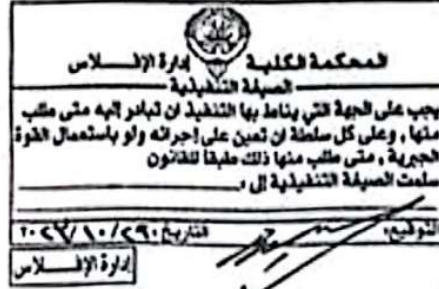 المحكمة الكلية إدارة الإفـلاس
الصيغة التنفيذية
يجب على الجهة التي يناط بها التنفيذ ان تبادر إليه متى طلب
منها ، وعلى كل سلطة ان تعين على إجرائه ولو باستعمال القوة
الجبرية ، متى طلب منها ذلك طبقا للقانون
سلمت الصيغة التنفيذية إلى :
التوقيع: التاريخ: ٢٠٢٣/١٠/٢٩
إدارة الإفـلاس